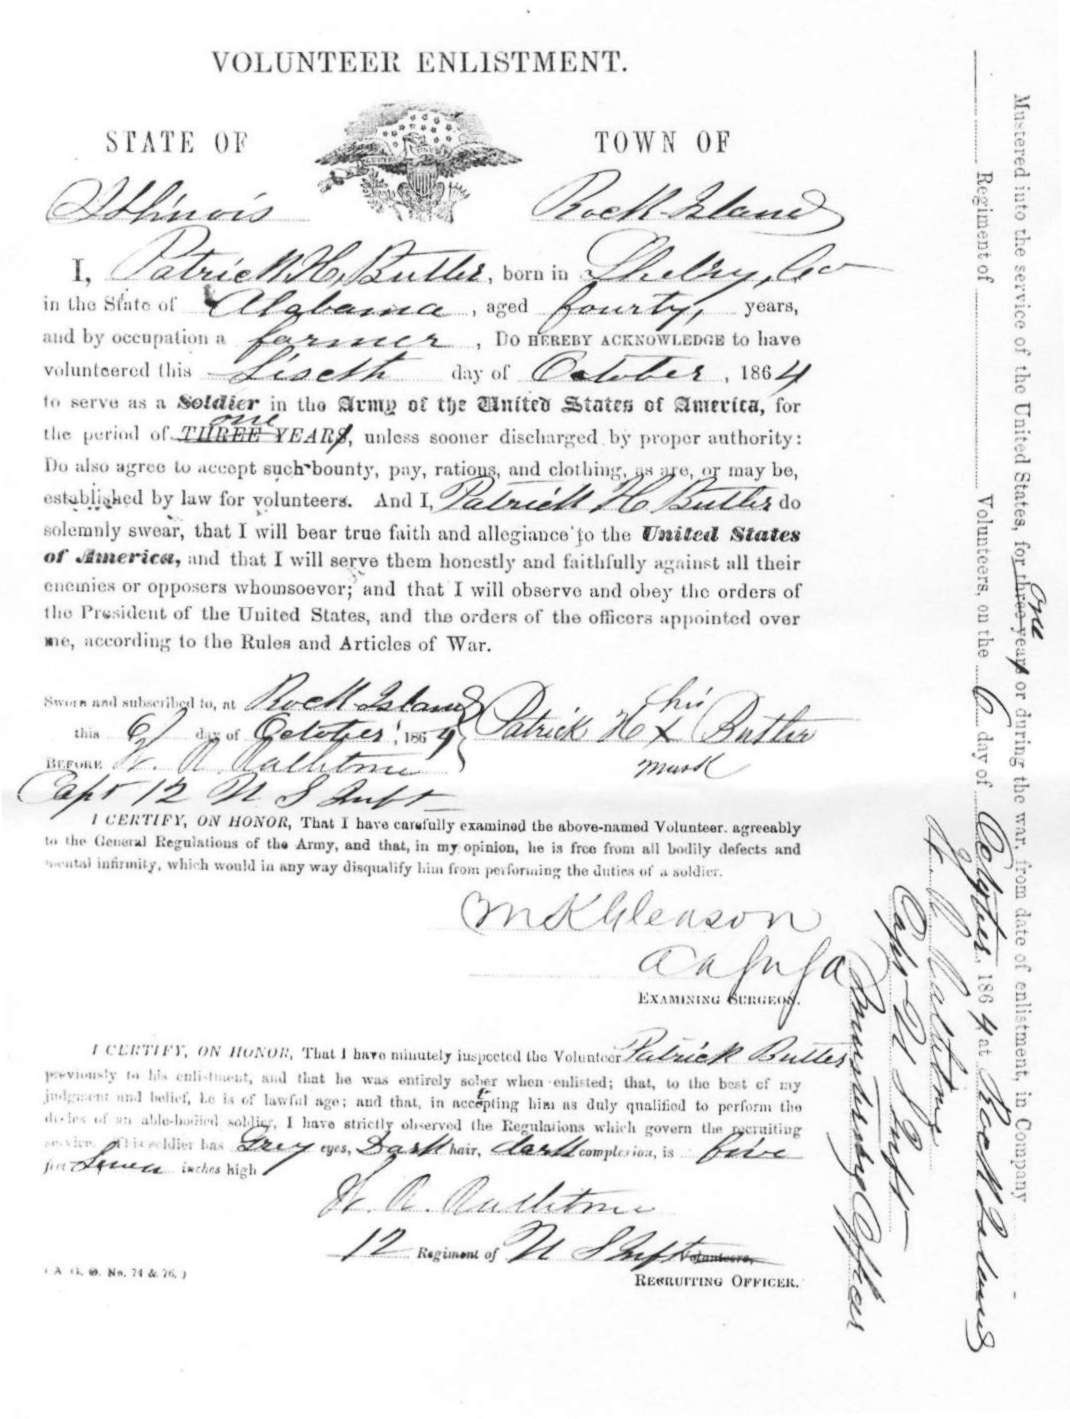 VOLUNTEER ENLISTMENT.
STATE OF TOWN OF
Illinois Rock Island
I, Patrick H. Butler, born in Shelby, Co
in the State of Alabama, aged fourty, years,
and by occupation a farmer, DO HEREBY ACKNOWLEDGE to have
volunteered this Siscth day of October, 1864
to serve as a Soldier in the Army of the United States of America, for
one
the period of THREE YEARS, unless sooner discharged by proper authority:
Do also agree to accept such bounty, pay, rations, and clothing, as are, or may be,
established by law for volunteers. And I, Patrick H Butler do
solemnly swear, that I will bear true faith and allegiance to the United States
of America, and that I will serve them honestly and faithfully against all their
enemies or opposers whomsoever; and that I will observe and obey the orders of
the President of the United States, and the orders of the officers appointed over
me, according to the Rules and Articles of War.
Sworn and subscribed to, at Rock Island
this 6 day of October, 1864
Patrick H his X mark Butler
BEFORE
Capt 12 U S Inft
I CERTIFY, ON HONOR, That I have carefully examined the above-named Volunteer, agreeably
to the General Regulations of the Army, and that, in my opinion, he is free from all bodily defects and
mental infirmity, which would in any way disqualify him from performing the duties of a soldier.
M K Gleason
EXAMINING SURGEON.
I CERTIFY, ON HONOR, That I have minutely inspected the Volunteer Patrick Butler
previously to his enlistment, and that he was entirely sober when enlisted; that, to the best of my
judgment and belief, he is of lawful age; and that, in accepting him as duly qualified to perform the
duties of an able-bodied soldier, I have strictly observed the Regulations which govern the recruiting
service. This soldier has Grey eyes, Dark hair, dark complexion, is five
feet Seven inches high
12 Regiment of U S Inft Volunteers,
RECRUITING OFFICER.
(A. G. O. No. 74 & 76.)
Mustered into the service of the United States, for three years or during the war, from date of enlistment, in Company
one
Regiment of Volunteers, on the 6 day of October, 1864 at Rock Island
Capt U S Inft
Mustering Officer